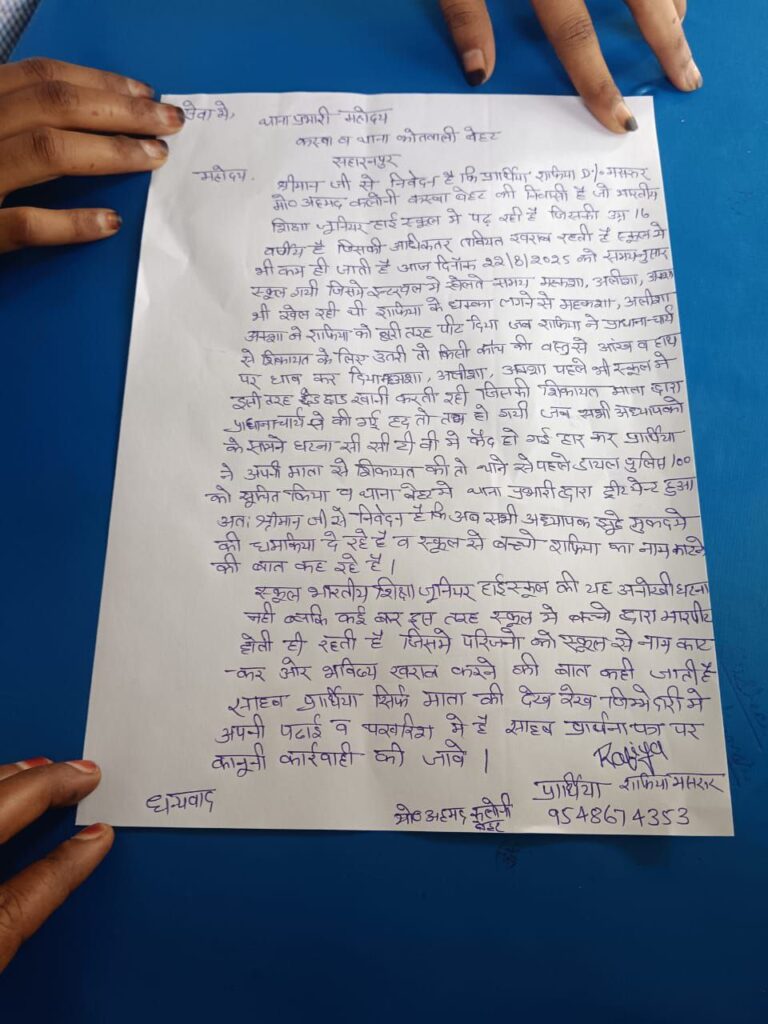 सेवा में,
थाना प्रभारी महोदय
कस्बा व थाना कोतवाली बेहट
सहारनपुर
महोदय.
श्रीमान जी से निवेदन है कि प्रार्थिया राफिया D/०
मौ० अहमद कलोनी कस्बा बेहट की निवासी है जो भारतीय
शिक्षा जूनियर हाई स्कूल मे पढ रही है जिसकी उम्र 16
वर्षीय है जिसकी अधिकतर तबियत खराब रहती है स्कूल मे
भी कम ही जाती है आज दिनाँक 22/8/2025 को समयनुसार
स्कूल गयी जिसमे इन्टरवल मे खेलते समय अलीशा,
भी खेल रही थी राफिया के धक्का लगने से महकशा, अलीशा
ने राफिया को बुरी तरह पीट दिया जब राफिया ने प्राधाना-चार्य
से शिकायत के लिए उतरी तो किसी कांच की वस्तु से आंख व हाथ
पर घाव कर दिया अलीशा, पहले भी स्कूल मे
इसी तरह छेडछाड खानी करती रही जिसकी शिकायत माता द्वारा
प्राधानाचार्य से की गई हद तो तब हो गयी जब सभी अध्यापको
के सामने घटना सी सी टी वी मे कैद हो गई हार कर प्रार्थिया
ने अपनी माता से शिकायत की तो थाने से पहले डायल पुलिस 100
को सूचित किया व थाना बेहट मे थाना प्रभारी द्वारा ट्रीटमेन्ट हुआ
अतः श्रीमान जी से निवेदन है कि अब सभी अध्यापक झूठे मुकदमे
की धमकिया दे रहे है व स्कूल से बच्चो राफिया का नाम काटने
की बात कह रहे है।
स्कूल भारतीय शिक्षा जूनियर हाईस्कूल की यह अनोखी घटना
नही बल्कि कई बार इस तरह स्कूल मे बच्चो द्वारा मारपीट
होती ही रहती है जिसमे परिजनो को स्कूल से नाम काट
-कर और भविष्य खराब करने की बात कही जाती है
साहब प्रार्थिया सिर्फ माता की देख रेख जिम्मेदारी मे
अपनी पढाई व परवरिश मे है साहब प्रार्थना पत्र पर
कानूनी कार्रवाही की जावे।
Rafiya
धन्यवाद
प्रार्थिया राफिया
मो० अहमद कलोनी
बेहट
9548674353